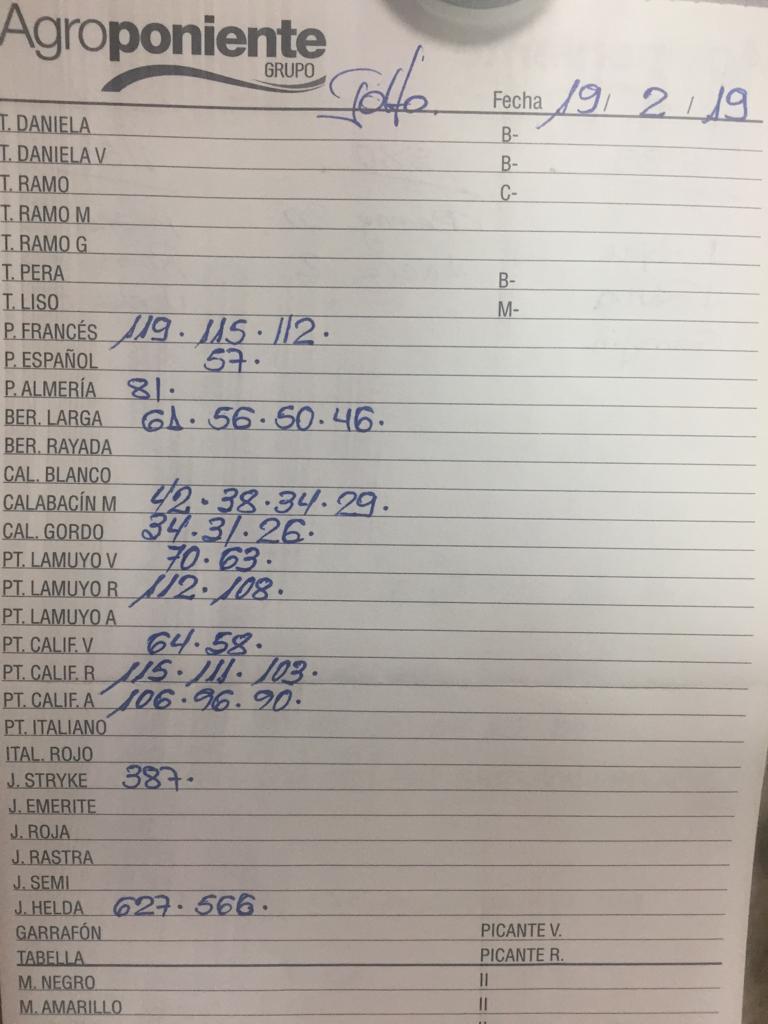 Agroponiente
GRUPO
Fecha 19/ 2 / 19
T. DANIELA B-
T. DANIELA V B-
T. RAMO C-
T. RAMO M
T. RAMO G
T. PERA B-
T. LISO M-
P. FRANCÉS 119. 115. 112.
P. ESPAÑOL 57.
P. ALMERÍA 81.
BER. LARGA 61. 56. 50. 46.
BER. RAYADA
CAL. BLANCO
CALABACÍN M 42. 38. 34. 29.
CAL. GORDO 34. 31. 26.
PT. LAMUYO V 70. 63.
PT. LAMUYO R 112. 108.
PT. LAMUYO A
PT. CALIF. V 64. 58.
PT. CALIF. R 115. 111. 103.
PT. CALIF. A 106. 96. 90.
PT. ITALIANO
ITAL. ROJO
J. STRYKE 387.
J. EMERITE
J. ROJA
J. RASTRA
J. SEMI
J. HELDA 627. 566.
GARRAFÓN PICANTE V.
TABELLA PICANTE R.
M. NEGRO II
M. AMARILLO II